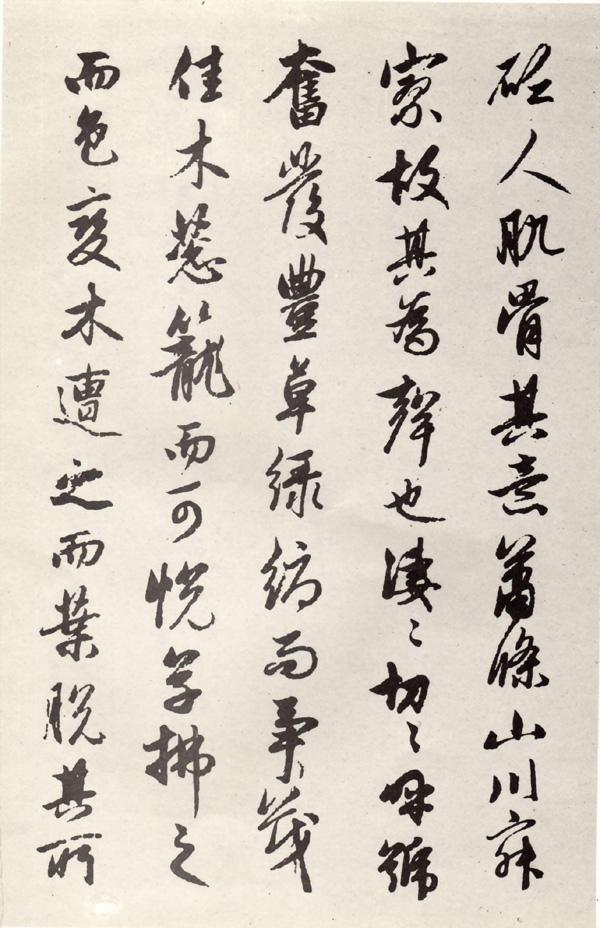 砭人肌骨其意蕭條山川寂
寥故其為聲也淒〻切〻呼號
奮發豐草綠縟而爭茂
佳木蔥籠而可悅草拂之
而色變木遭之而葉脫其所